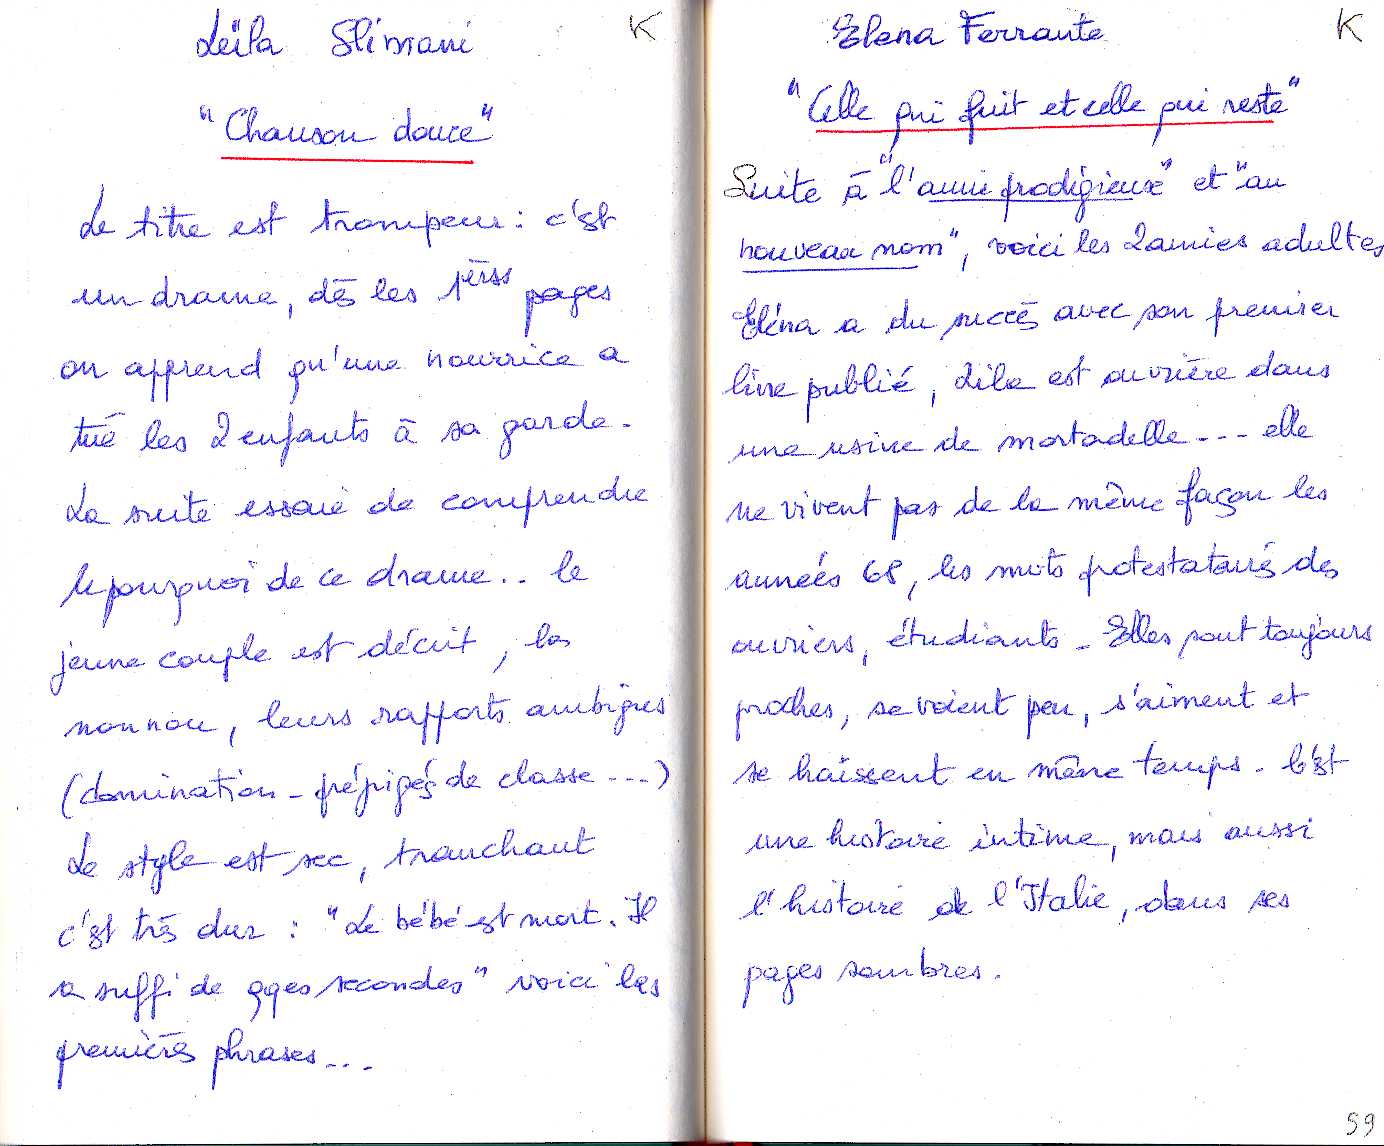 Leïla Slimani K
"Chanson douce"
Le titre est trompeur : c'est
un drame, dès les 1èrss pages
on apprend qu'une nourrice a
tué les 2 enfants à sa garde.
La suite essaie de comprendre
le pourquoi de ce drame.. le
jeune couple est décrit, la
nounou, leurs rapports ambigus
(domination - préjugés de classe ...)
Le style est sec, tranchant
c'est très dur : "Le bébé est mort. Il
a suffi de qqes secondes" voici les
premières phrases...
Elena Ferrante K
"Celle qui fuit et celle qui reste"
Suite à "l'amie prodigieuse" et "au
nouveau nom", voici les 2 amies adultes
Eléna a du succès avec son premier
livre publié, Lila est ouvrière dans
une usine de mortadelle --- elle
ne vivent pas de la même façon les
années 68, les mvts protestataires des
ouvriers, étudiants - Elles sont toujours
proches, se voient peu, s'aiment et
se haïssent en même temps. C'est
une histoire intime, mais aussi
l'histoire de l'Italie, dans ses
pages sombres.
59